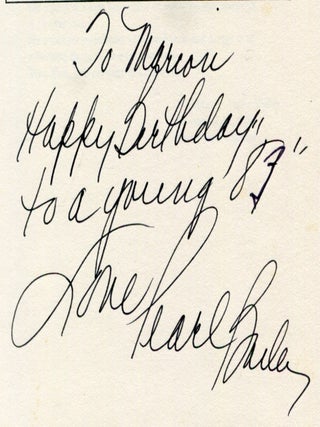 To Marion
Happy Birthday"
to a young "83"
Love
Pearl Bailey